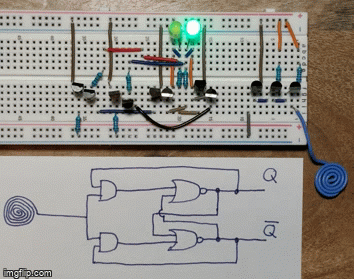 Q
Q̅
imgflip.com